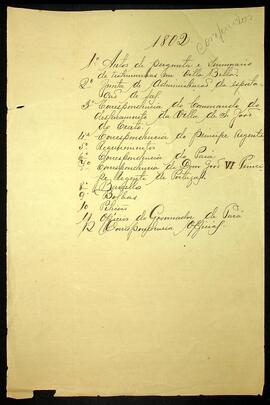 1802
1º Autos de pergunta e Summario
de testemunhas em Villa Bella
2º Junta de Administracão da
de Sal
3º Correspondencia do Commando do
destacamento da Villa de S. João
do Crato
4º Correspondencia do Principe Regente
5º Requerimentos
6º Correspondencia do Pará
7º Correspondencia de Dom João VI Princi
pe Regente de Portugal
8º
9º
10
11 Officios do Governador do Pará
12 Correspondencia Official